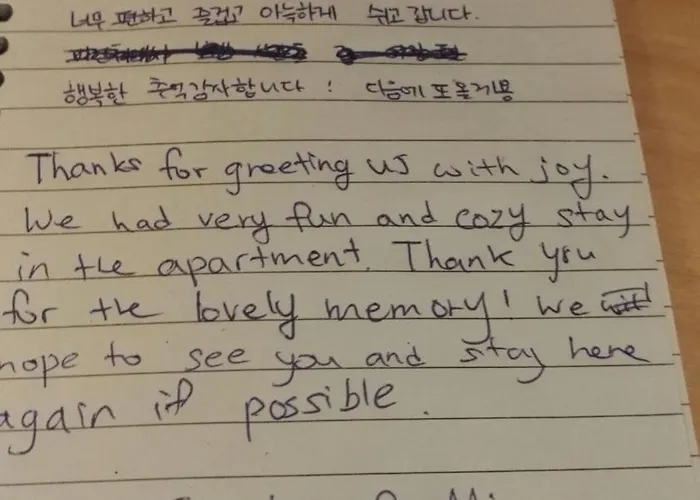 너무 편하고 즐겁고 아늑하게 쉬고 갑니다.
행복한 추억감사합니다! 다음에 또 올게용
Thanks for greeting us with joy.
We had very fun and cozy stay
in the apartment. Thank you
for the lovely memory! We
hope to see you and stay here
again if possible.